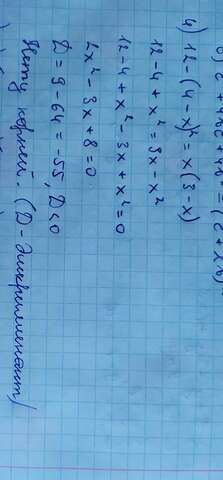 4) 12-(4-x)²=x(3-x)
12-4+x²=3x-x²
12-4+x²-3x+x²=0
2x²-3x+8=0
D=9-64=-55, D<0
Нету корней. (D-дискриминант)